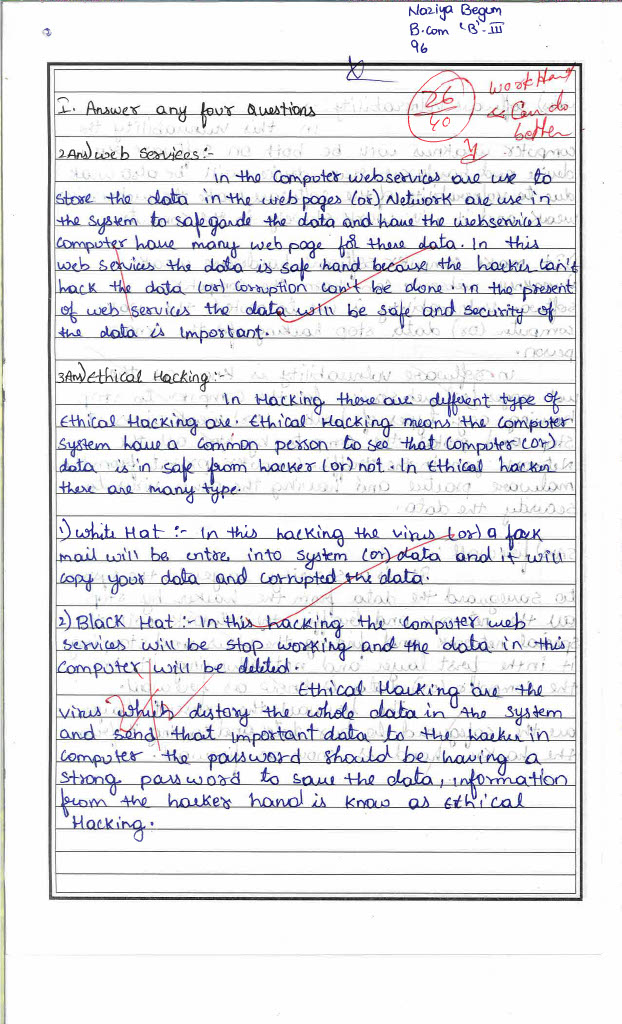 Naziya Begum
B.com 'B'-III
96
26
40
work Hard
& Can do
better
I. Answer any four Questions
2Ans) web services:-
in the Computer webservices are use to
store the data in the web pages (or) Network are use in
the system to safegarde the data and have the webservices
Computer have many web page for there data. In this
web services the data is safe hand because the hacker can't
hack the data (or) corruption can't be done. in the present
of web services the data will be safe and security of
the data is important.
3Ans) Ethical Hacking:-
In Hacking there are different type of
Ethical Hacking are. Ethical Hacking means the computer
system have a common person to see that computer (or)
data is in safe from hacker (or) not. In Ethical hacker
there are many type.
1) white Hat :- In this hacking the virus (or) a fack
mail will be entre into system (or) data and it will
copy your data and corrupted the data.
2) Black Hat :- In this hacking the computer web
services will be stop working and the data in this
computer will be deleted.
Ethical Hacking are the
virus which distory the whole data in the system
and send that important data to the hacker in
computer. the password should be having a
strong password to save the data, information
from the hacker hand is know as Ethical
Hacking.